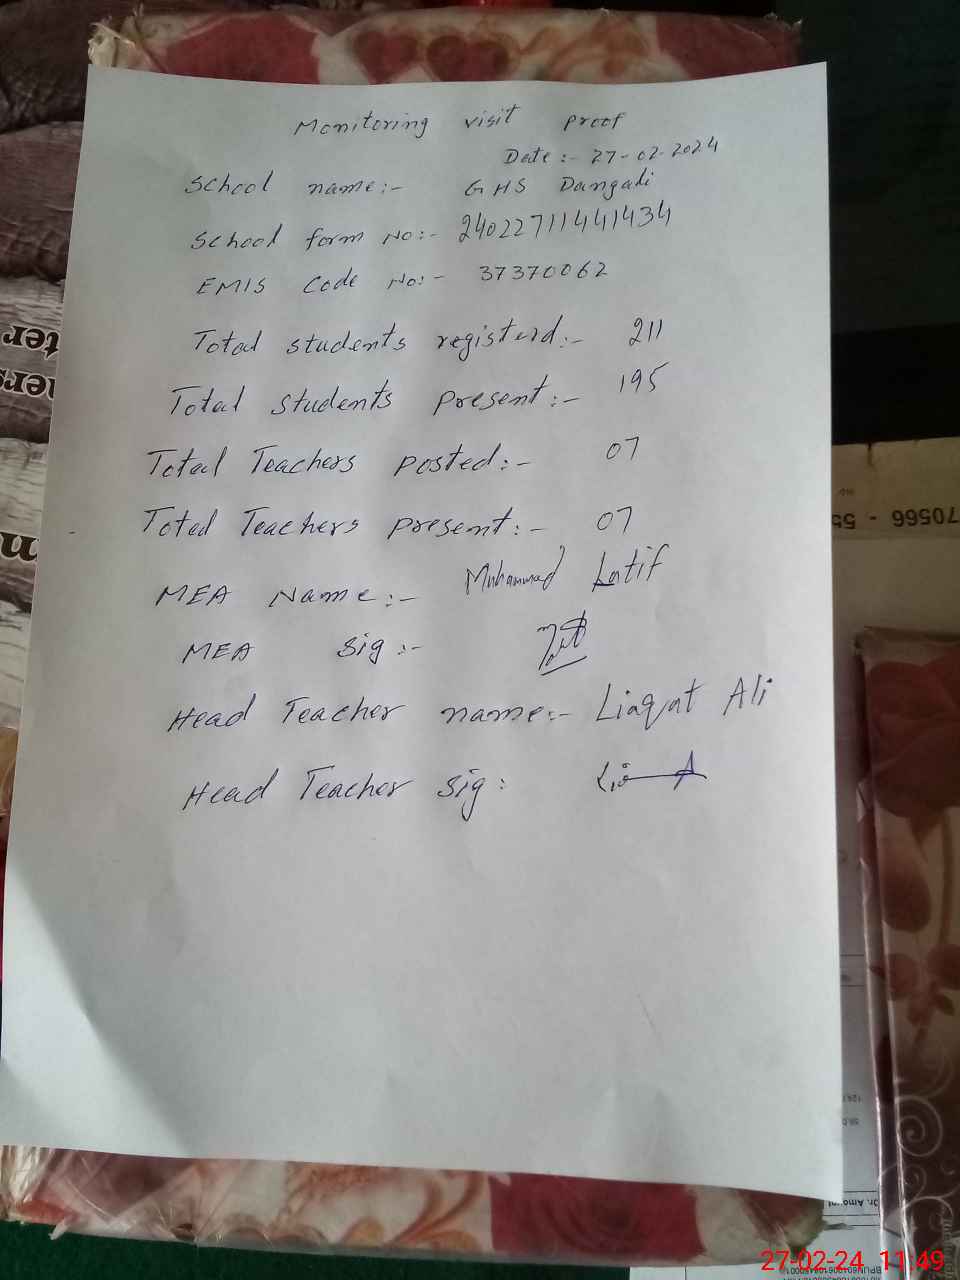 Monitoring visit proof
Date :- 27-02-2024
School name:- GHS Dangali
School form No:- 24022711441434
EMIS Code No:- 37370062
Total students registerd:- 211
Total students present:- 195
Total Teachers posted:- 07
Total Teachers present:- 07
MEA Name:- Muhammad Latif
MEA Sig:-
Head Teacher name:- Liaqat Ali
Head Teacher Sig:
70566 - 55
9950
Dr. Amount
27-02-24 11:49